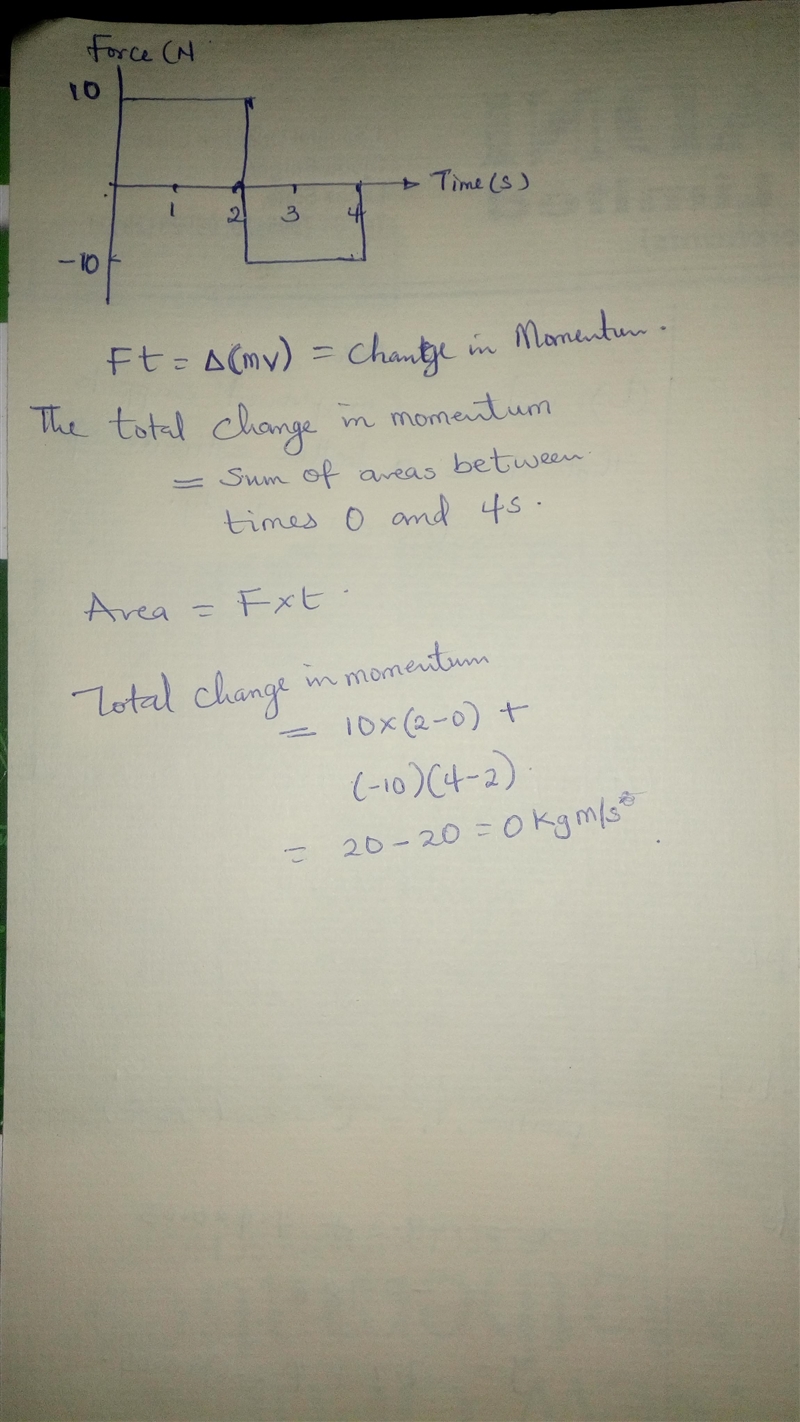 Force (N
10
Time(s)
1 2 3 4
-10
Ft = Δ(mv) = Change in Momentum.
The total change in momentum
= Sum of areas between
times 0 and 4s.
Area = F×t.
Total change in momentum
= 10×(2-0) +
(-10)(4-2)
= 20-20 = 0 kg m/s.